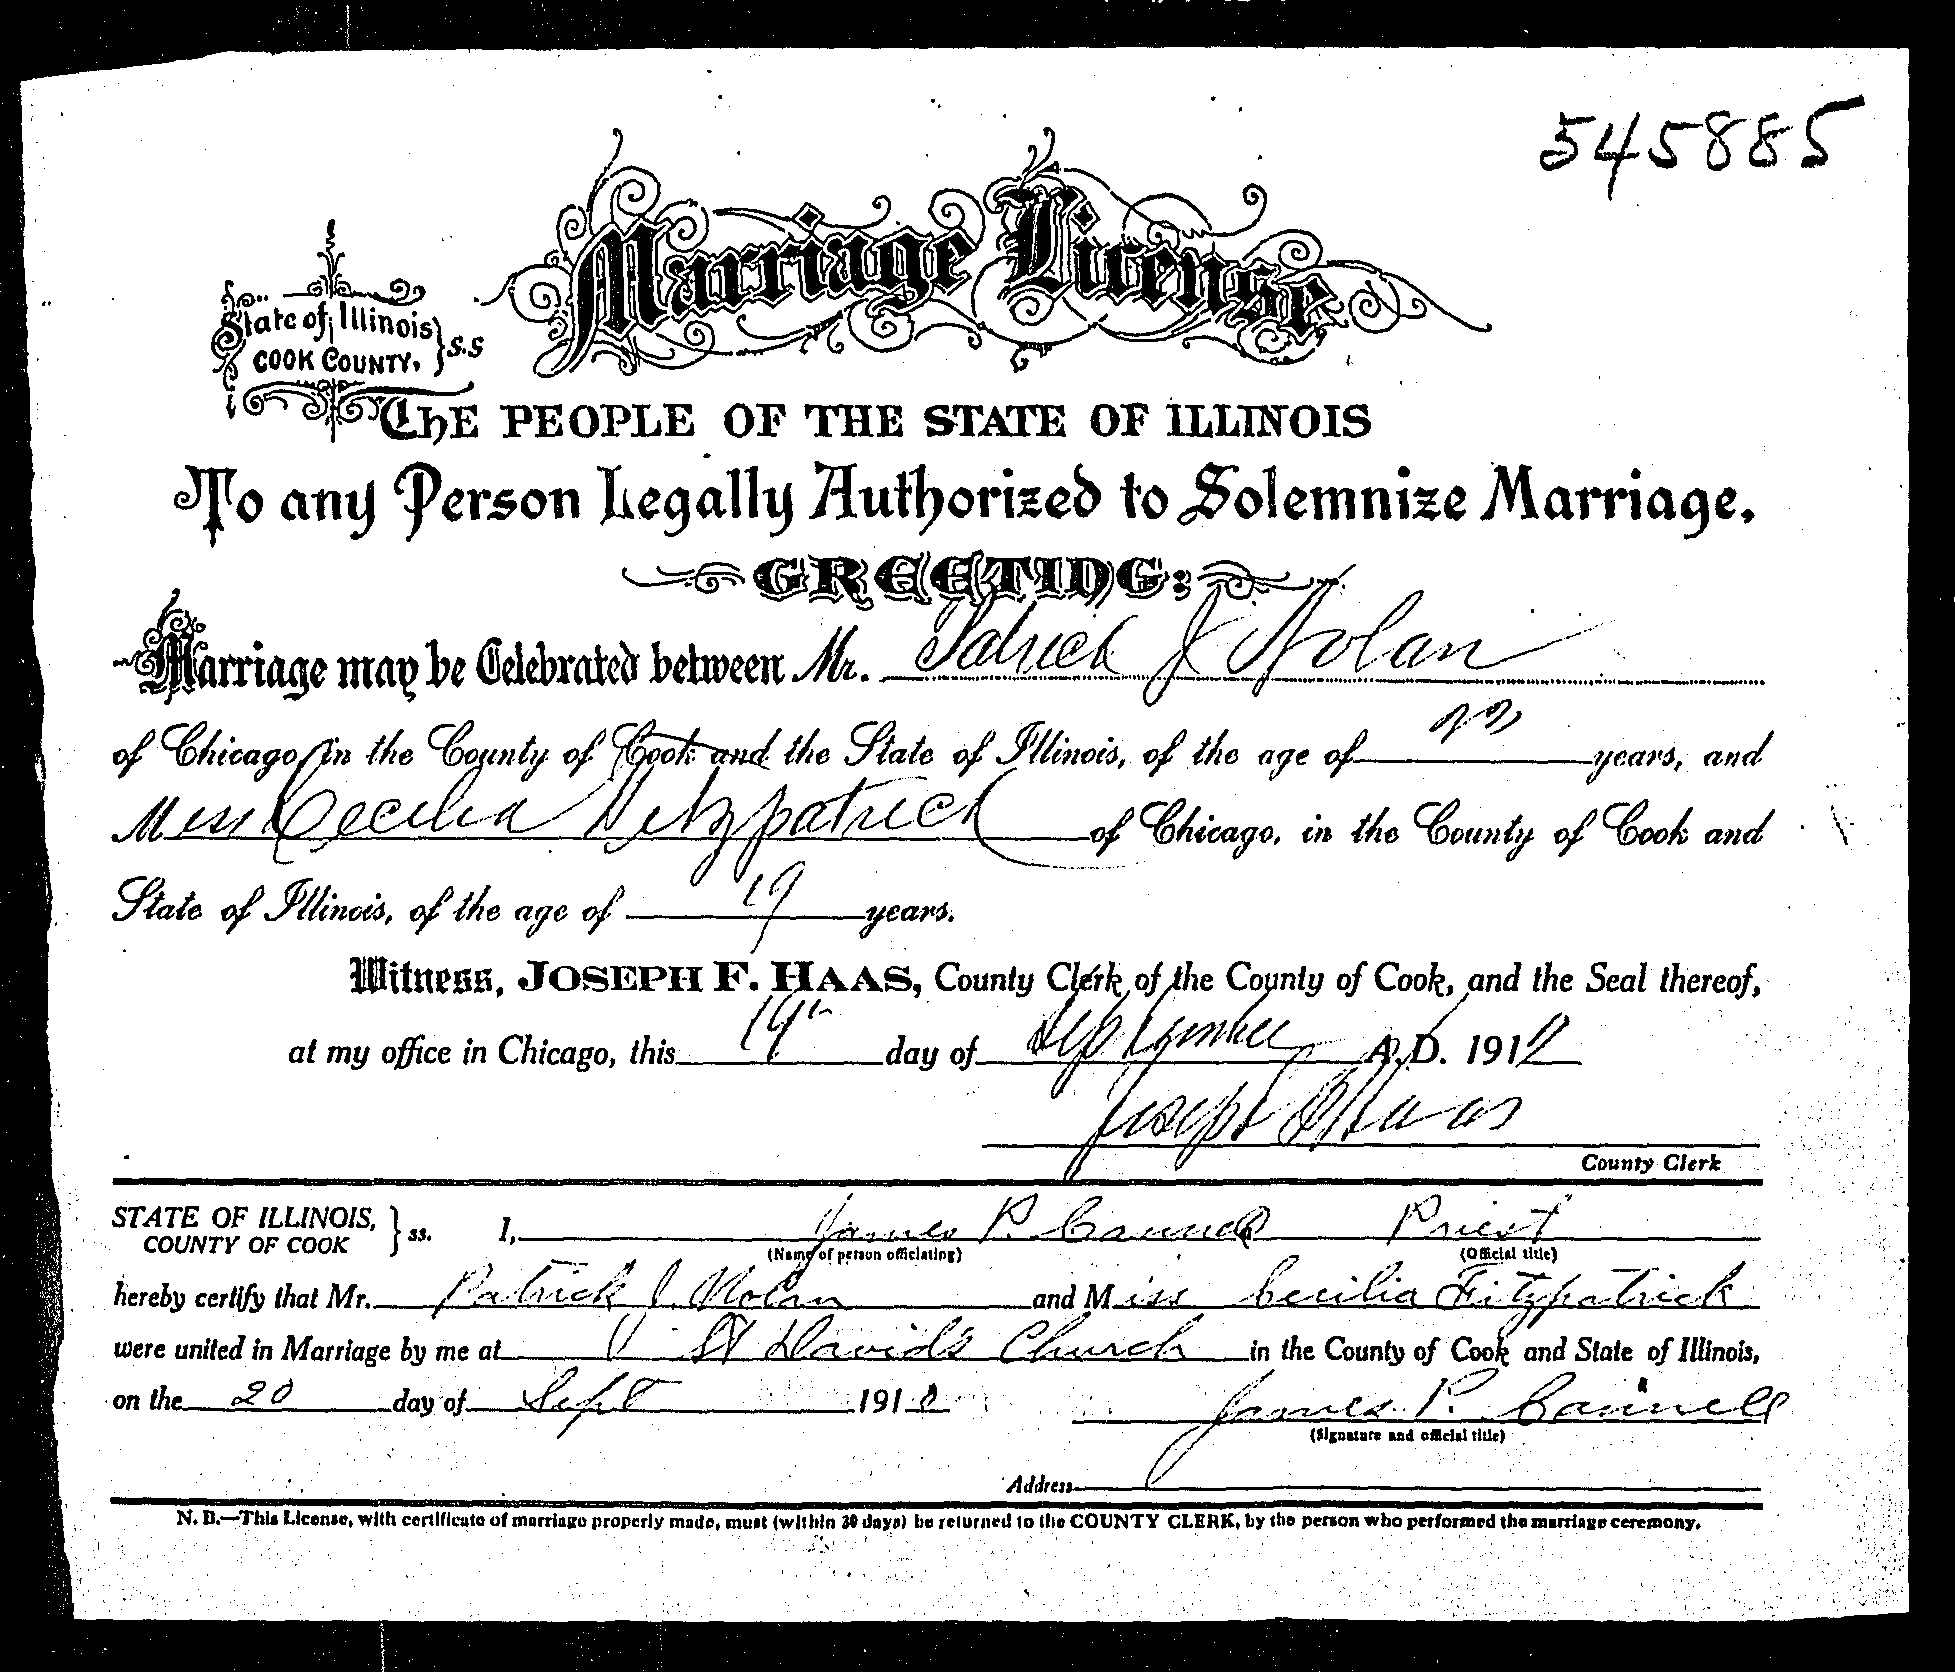 545885
Marriage License
State of Illinois
COOK COUNTY, } s.s
The PEOPLE OF THE STATE OF ILLINOIS
To any Person Legally Authorized to Solemnize Marriage.
GREETING:
Marriage may be Celebrated between Mr. Patrick J Nolan
of Chicago, in the County of Cook and the State of Illinois, of the age of years, and
Miss Cecilia Fitzpatrick of Chicago, in the County of Cook and
State of Illinois, of the age of 19 years.
Witness, JOSEPH F. HAAS, County Clerk of the County of Cook, and the Seal thereof,
at my office in Chicago, this 19th day of September A.D. 191
Joseph F Haas
County Clerk
STATE OF ILLINOIS,
COUNTY OF COOK } ss. I, James P. Cannell Priest
(Name of person officiating) (Official title)
hereby certify that Mr. Patrick J. Nolan and Miss Cecilia Fitzpatrick
were united in Marriage by me at St David's Church in the County of Cook and State of Illinois,
on the 20 day of Sept 191 James P. Cannell
(Signature and official title)
Address
N. B.—This License, with certificate of marriage properly made, must (within 30 days) be returned to the COUNTY CLERK, by the person who performed the marriage ceremony.